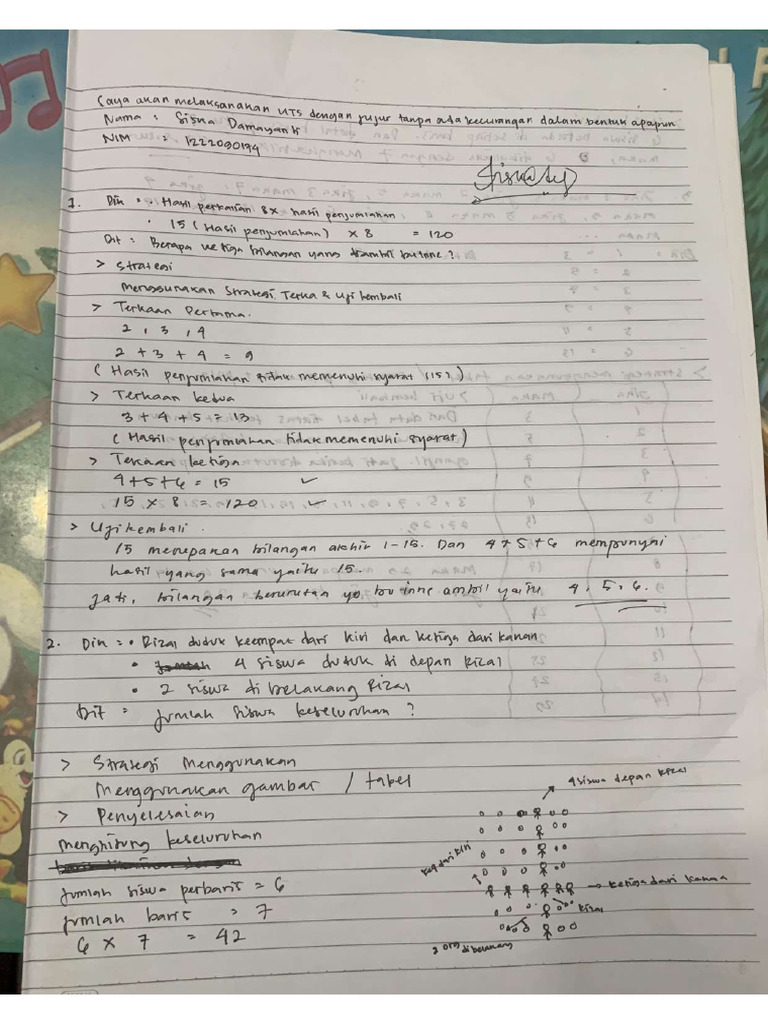 Saya akan melaksanakan UTS dengan jujur tanpa ada kecurangan dalam bentuk apapun
Nama : Siska Damayanti
NIM : 1222090194
1. Din = • Hasil perkalian 8x hasil penjumlahan
• 15 (Hasil penjumlahan) x 8 = 120
Dit = Berapa ketiga bilangan yang diambil bu inne?
> Strategi
Menggunakan Strategi Terka & Uji kembali
> Terkaan Pertama.
2 , 3 , 4
2 + 3 + 4 = 9
( Hasil penjumlahan tidak memenuhi syarat (15) )
> Terkaan kedua
3 + 4 + 5 = 13
( Hasil penjumlahan tidak memenuhi syarat )
> Terkaan ketiga
4 + 5 + 6 = 15 ✓
15 x 8 = 120 ✓
> Uji kembali .
15 merupakan bilangan akhir 1-15. Dan 4 + 5 + 6 mempunyai
hasil yang sama yaitu 15.
Jadi, bilangan berurutan yg bu inne ambil yaitu 4, 5, 6.
2. Din = • Rizal duduk keempat dari kiri dan ketiga dari kanan
• 4 siswa duduk di depan Rizal
• 2 siswa di belakang Rizal
Dit = Jumlah siswa keseluruhan ?
> Strategi Menggunakan
Menggunakan gambar / tabel
> Penyelesaian
menghitung keseluruhan
Jumlah siswa perbaris = 6
Jumlah baris = 7
6 x 7 = 42
4 siswa depan Rizal
ke4 dari kiri
ketiga dari kanan
Rizal
2 org dibelakang